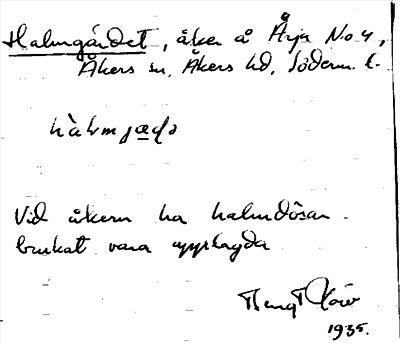 Halmgärdet, åker å Åja No 4,
Åkers sn, Åkers hd, Söderm. l.
Vid åkern ha halmdösar
brukat vara upplagda
Bengt
1935.